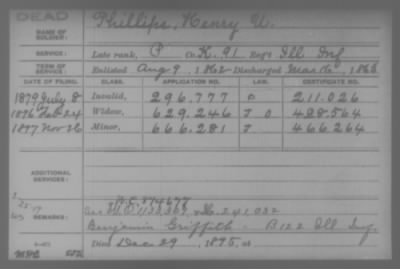 DEAD
NAME OF SOLDIER: Phillips, Henry W.
SERVICE: Late rank, P Co. K, 91 Reg't Ill Inf
TERM OF SERVICE: Enlisted Aug 9, 1862 Discharged , 186
DATE OF FILING. CLASS. APPLICATION NO. LAW. CERTIFICATE NO.
1879 July 8 Invalid, 296.777 211.026
1896 Feb 24 Widow, 629.246 428.564
1897 Nov 26 Minor, 666.281 466264
ADDITIONAL SERVICES:
REMARKS:
Benjamin Griffith - B 122 Ill Inf.
Died Dec 29, 1895, at